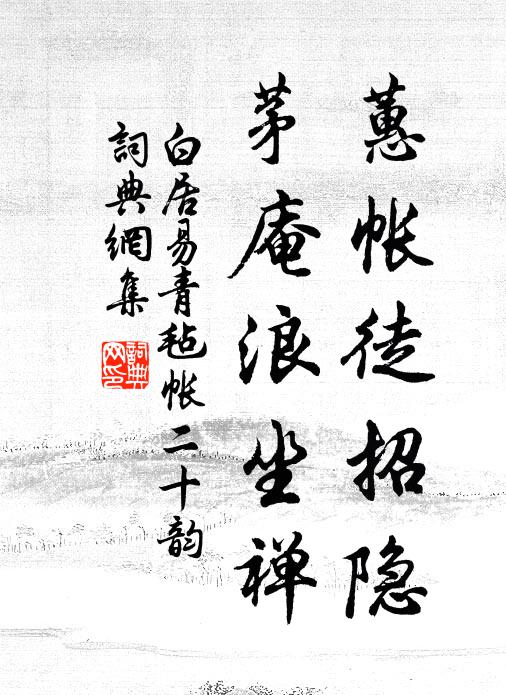 蕙帐徒招隐
茅庵浪坐禅
白居易青毡帐二十韵
詞典網集
詞典网印